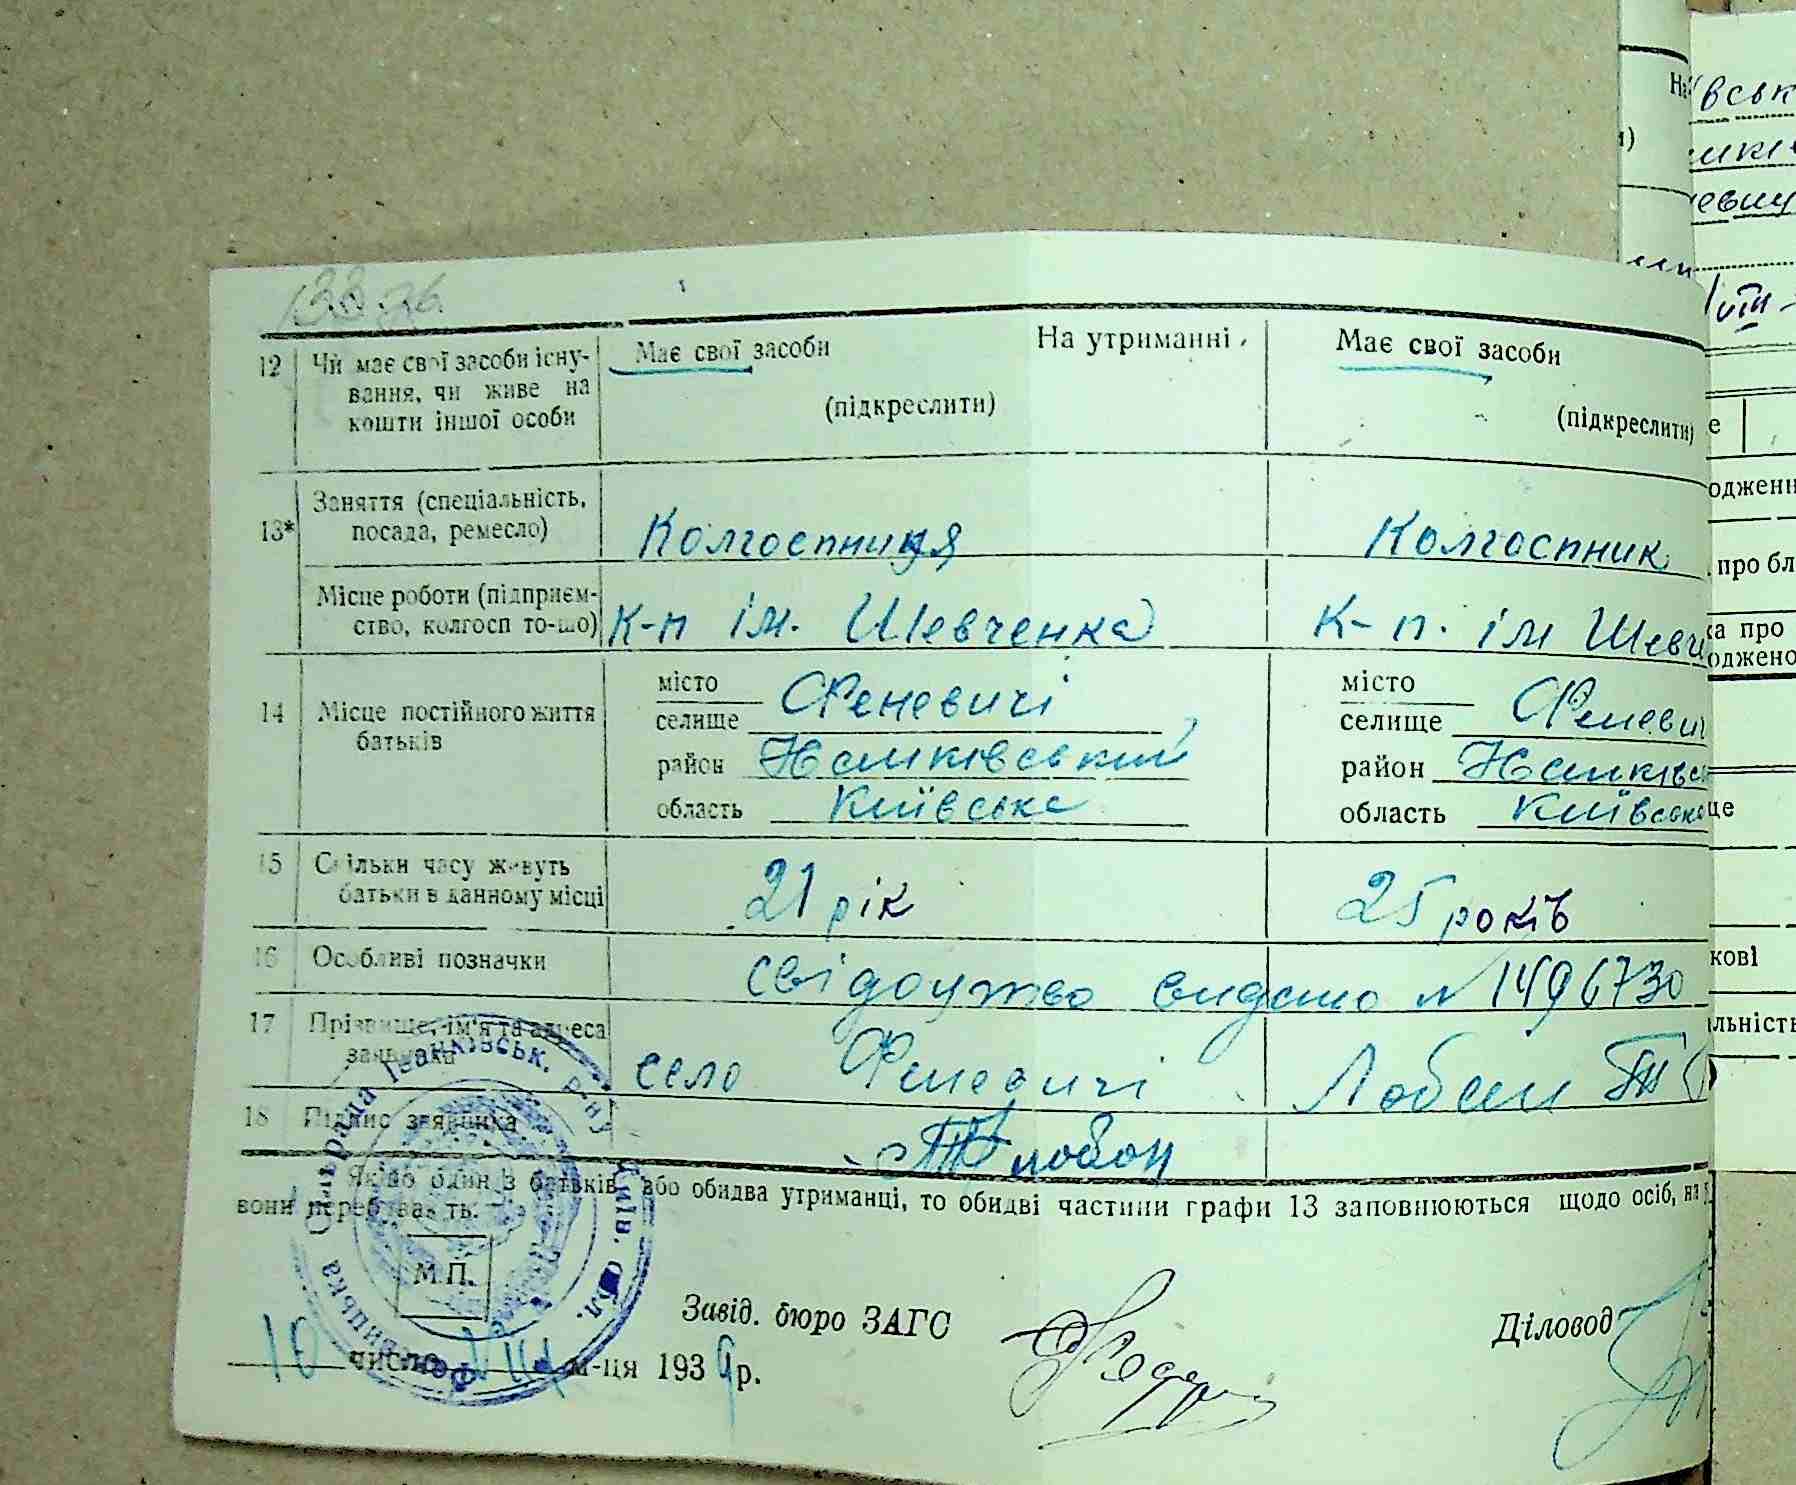 12 Чи має свої засоби існу-
вання, чи живе на
кошти іншої особи
Має свої засоби На утриманні Має свої засоби
(підкреслити) (підкреслити)
13* Заняття (спеціальність,
посада, ремесло)
Колгоспниця Колгоспник
Місце роботи (підприєм-
ство, колгосп то-що)
К-п ім. Шевченка К-п. ім Шевч
14 Місце постійного життя
батьків
місто
селище Феневичі
район
область Київська
місто
селище Феневич
район
область Київська
15 Скільки часу живуть
батьки в данному місці
21 рік 25 років
16 Особливі позначки
свідоцтво видано № 1496730
17 Прізвище, ім'я та адреса
заявника
село Феневичі Лобан
18 Підпис заявника
Лобан
Якщо один з батьків або обидва утриманці, то обидві частини графи 13 заповнюються щодо осіб, на
вони перебувають.
М.П.
Сільрада Іванківськ. р-ну Київ. Обл.
Завід. бюро ЗАГС
Діловод
10 число VIII м-ця 1939 р.
одженн
про бл
ка про
оджено
це
кові
льність